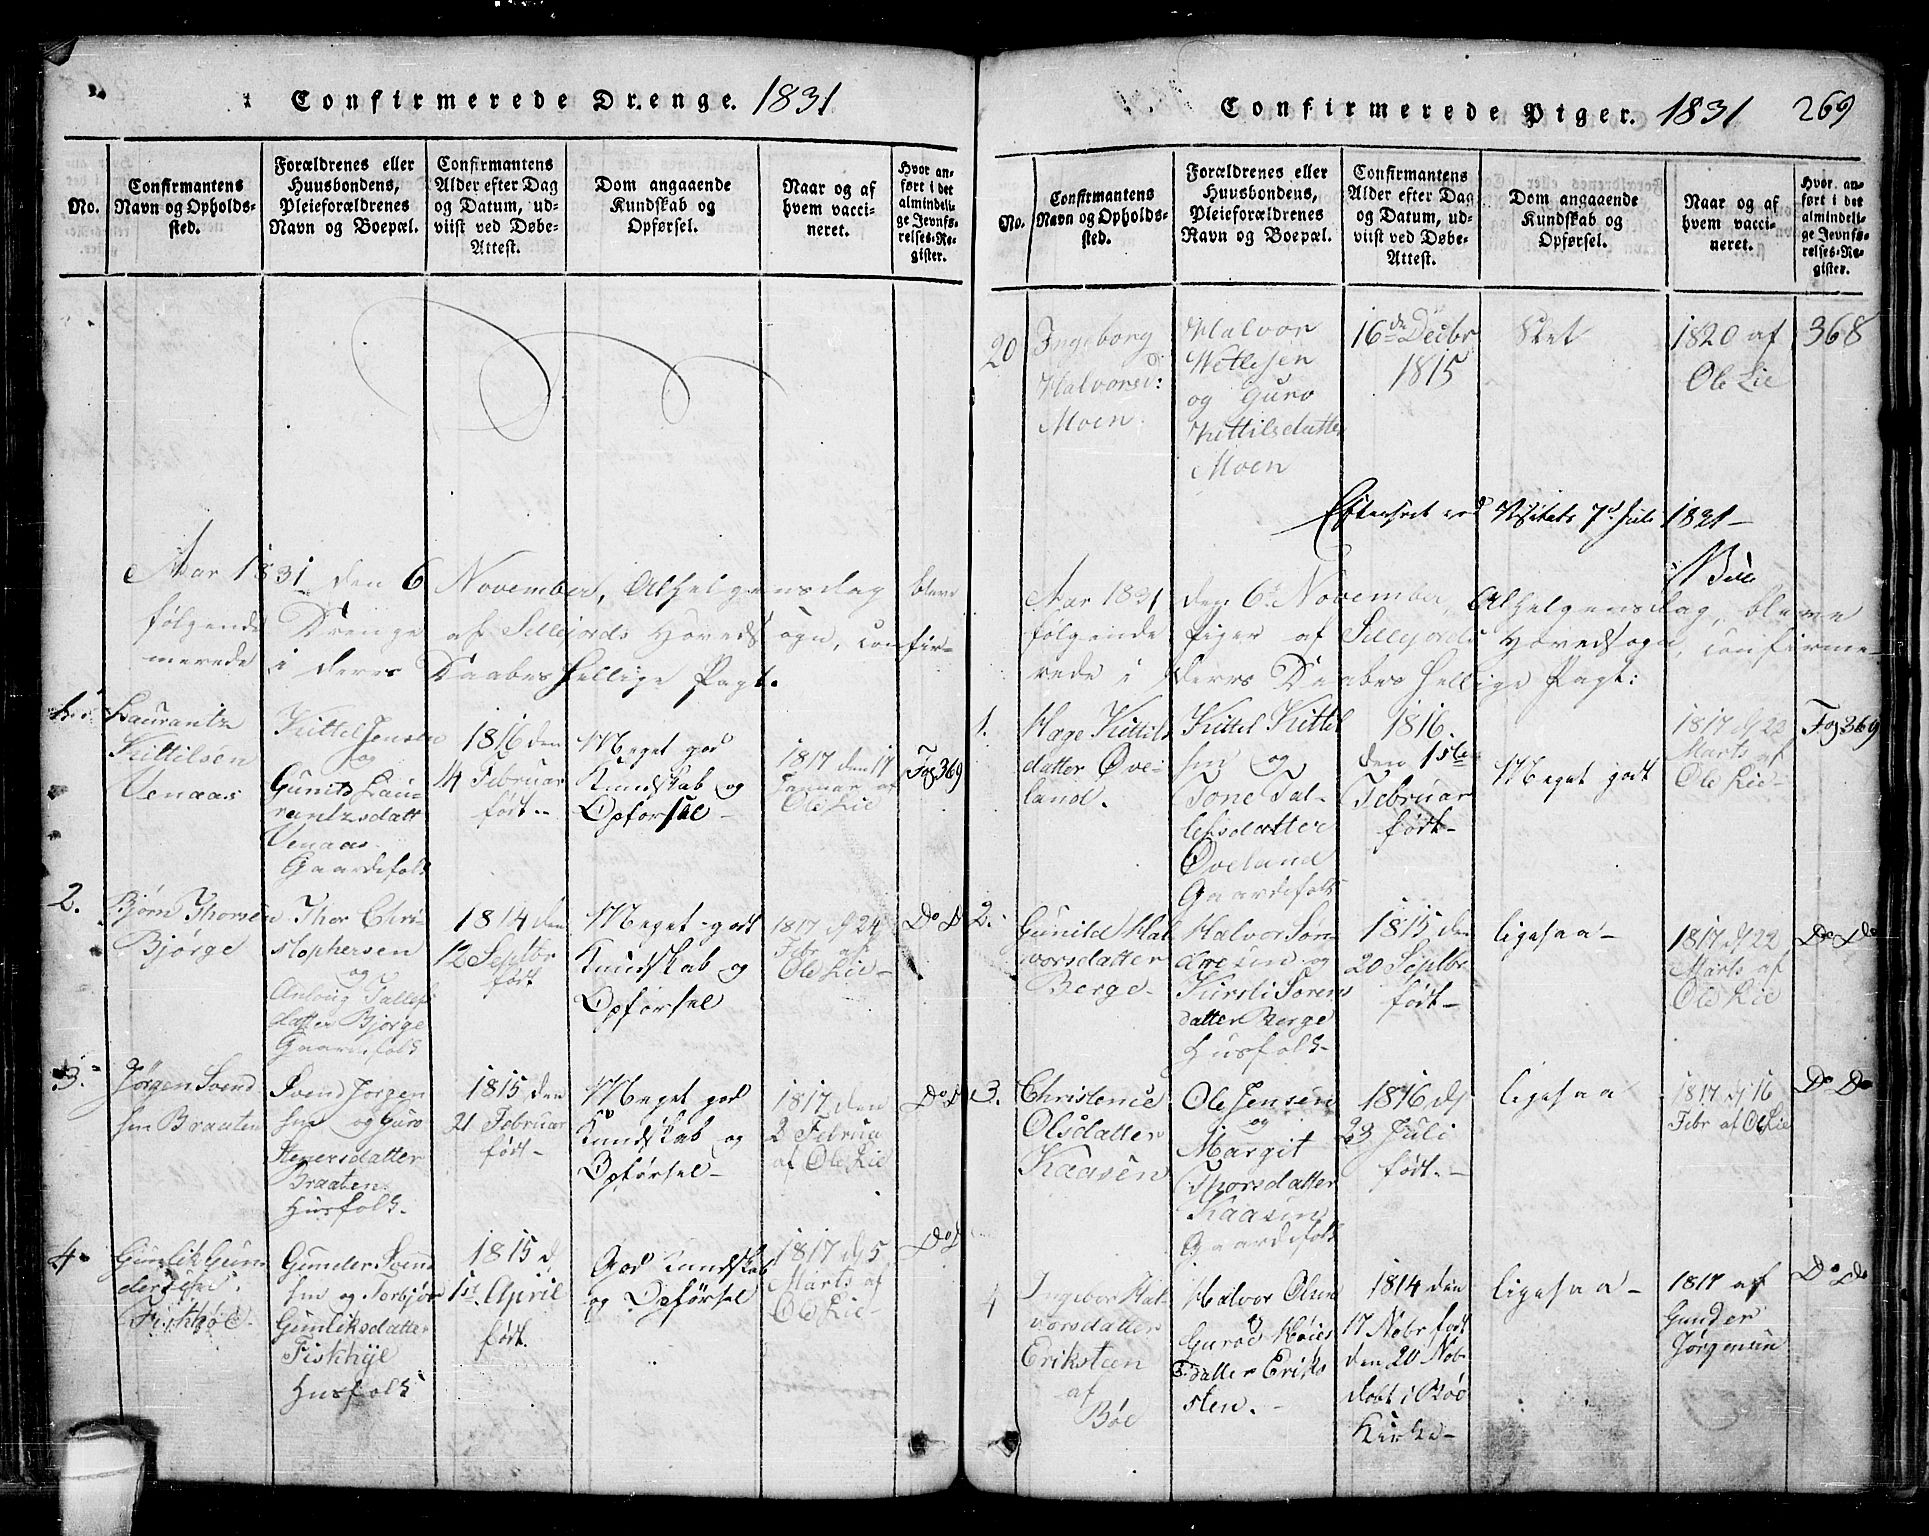 Confirmerede Drenge. 1831
No.
Confirmantens
Navn og Opholds-
sted.
Forældrenes eller
Huusbondens,
Pleieforældrenes
Navn og Boepæl.
Confirmantens
Alder efter Dag
og Datum, ud-
viist ved Døbe-
Attest.
Dom angaaende
Kundskab og
Opførsel.
Naar og af
hvem vacci-
neret.
Hvor an-
ført i det
almindeli-
ge Jevnfø-
relses-Re-
gister.
Aar 1831 den 6 November, Alhelgensdag bleve
følgende Drenge af Sillejords Hovedsogn, confir-
merede i deres Daabes hellige Pagt.
1.
Laurantz
Kittilsen
Venaas
Kittel Jensen
og
Gunild Lau-
rantzsdatt
Venaas
Gaardefolk
1816 den
4 Februar
født.-
Meget god
Kundskab og
Opførsel-
1817 den 17
Januar af
Ole Lie
Fog 369
2.
Bjørn Thorsen
Bjørge
Thor Chri-
stophersen
og
Anlaug Tallefs
datter Bjørge
Gaardefolk
1814 den
12 Septbr
født
Meget godt
Kundskab og
Opførsel
1817 dj 24
Febr af
Ole Lie-
Do D
3.
Jørgen Svend
sen Braaten
Svend Jørgen
sen og Guro
Stenersdatter
Braaten
Husfolk.
1815 den
21 Februar
født-
Meget god
Kundskab og
Opførsel-
1817 den
2 Februa
af Ole Lie
Do D
4.
Gunlik Gun
dersen
Fiskhøl-
Gunder Svend
sen og Torbjør
Gunliksdatter
Fiskhyl
Husfolk
1815 d.
1st April
født.
God Kundskab
og Opførsel
1817 dj 5
Marts af
Ole Lie-
Do D
Confirmerede Piger. 1831 269
No.
Confirmantens
Navn og Opholds-
sted.
Forældrenes eller
Huusbondens,
Pleieforældrenes
Navn og Boepæl.
Confirmantens
Alder efter Dag
og Datum, ud-
viist ved Døbe-
Attest.
Dom angaaende
Kundskab og
Opførsel.
Naar og af
hvem vacci-
neret.
Hvor an-
ført i det
almindeli-
ge Jevnfø-
relses-Re-
gister.
20
Ingeborg
Halvorsd:
Moen.
Halvor
Wetlesen
og Guro
Kittilsdatter
Moen
16de Decbr
1815
Slet
1820 af
Ole Lie
368
Efterseet ved Visitats 7d Juli 1831-
Aar 1831 den 6te November, Alhelgensdag, bleve
følgende Piger af Sillejords Hovedsogn, confirme-
rede i deres Daabes hellige Pagt:
1.
Hage Kittils
datter Øve-
land.
Kittel Kittil
sen og
Tone Tal-
lefsdatter
Øveland
Gaardefolk
1816.
den 1ste
Februar
født-
Meget godt
1817 dj 22
Marts af
Ole Lie-
Fog 369
2.
Gunild Hal
vorsdatter
Berge-
Halvor Søn-
dresen og
Kirsti Sørens
datter Berge
Husfolk-
1815 den
20 Septbr
født-
ligesaa-
1817 dj 22
Marts af
Ole Lie
Do Do
3.
Christence
Olsdatter
Kaasen
Ole Jensen
og
Margit
Thorsdatter
Kaasen
Gaardefolk
1816 dj
23 Juli
født.-
ligesaa
1817 dj 16
Febr af Ole Lie
Do Do
4
Ingebor Hal-
vorsdatter
Eriksteen
af
Bøe
Halvor Olsen
og
Guroe Høies
datter Eriks
sten.-
1814 den
17 Nobr født
den 20 Nob-
døbt i Bøe
Kirke-
ligesaa-
1817 af
Gunder
Jørgensen
Do Do